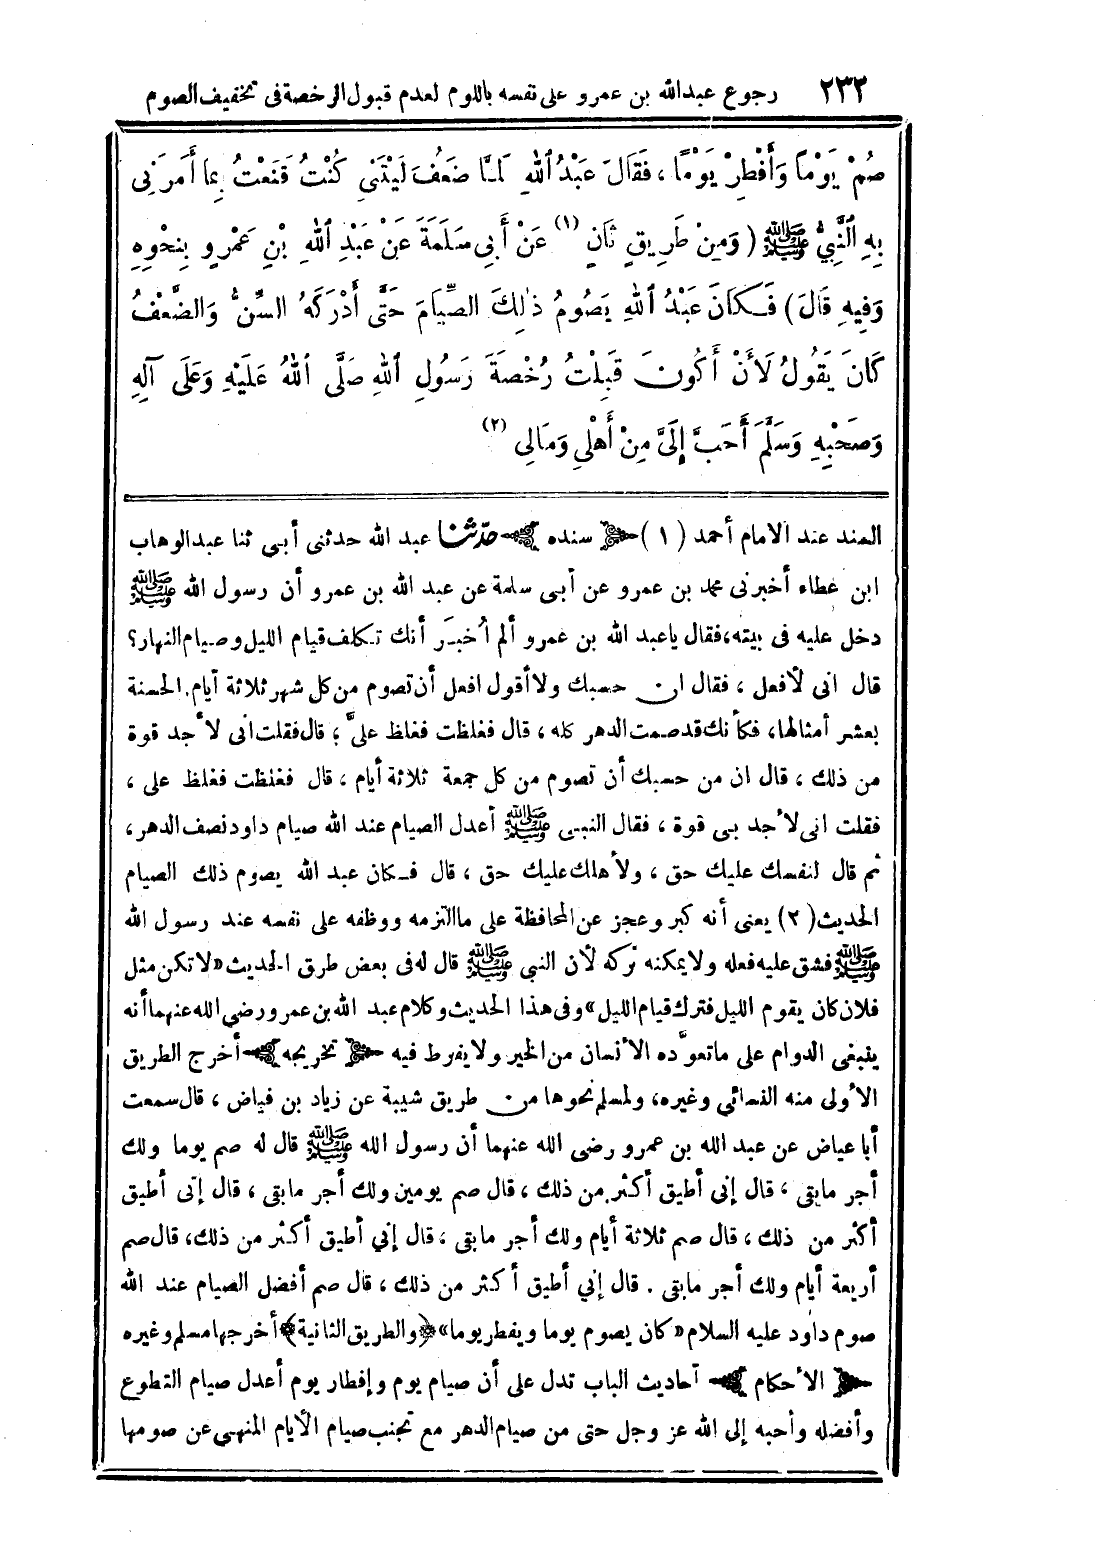 ٢٣٢ رجوع عبدالله بن عمرو على نفسه باللوم لعدم قبول الرخصة فى تخفيف الصوم
صُمْ يَوْمًا وَأَفْطِرْ يَوْمًا ، فَقَالَ عَبْدُ اللهِ لَمَّا ضَعُفَ لَيْتَنِى كُنْتُ قَنَعْتُ بِمَا أَمَرَنِى
بِهِ النَّبِىُّ ﷺ ( وَمِنْ طَرِيقٍ ثَانٍ (١) عَنْ أَبِى سَلَمَةَ عَنْ عَبْدِ اللهِ بْنِ عَمْرٍو بِنَحْوِهِ
وَفِيهِ قَالَ ) فَكَانَ عَبْدُ اللهِ يَصُومُ ذٰلِكَ الصِّيَامَ حَتَّى أَدْرَكَهُ السِّنُّ وَالضَّعْفُ
كَانَ يَقُولُ لَأَنْ أَكُونَ قَبِلْتُ رُخْصَةَ رَسُولِ اللهِ صَلَّى اللهُ عَلَيْهِ وَعَلَى آلِهِ
وَصَحْبِهِ وَسَلَّمَ أَحَبَّ إِلَىَّ مِنْ أَهْلِى وَمَالِى (٢)
المند عند الامام أحمد (١) ﴿ سنده ﴾ حدّثنا عبد الله حدثنى أبى ثنا عبدالوهاب
ابن عطاء أخبرنى محمد بن عمرو عن أبى سلمة عن عبد الله بن عمرو أن رسول الله ﷺ
دخل عليه فى بيته، فقال ياعبد الله بن عمرو ألم أُخبَر أنك تكلف قيام الليل وصيام النهار؟
قال انى لأفعل ، فقال ان حسبك ولا أقول افعل أن تصوم من كل شهر ثلاثة أيام. الحسنة
بعشر أمثالها، فكأنك قد صمت الدهر كله ، قال فغلظت فغلظ علىَّ ؛ قال فقلت انى لأجد قوة
من ذلك ، قال ان من حسبك أن تصوم من كل جمعة ثلاثة أيام ، قال فغلظت فغلظ على ،
فقلت انى لأجد بى قوة ، فقال النبى ﷺ أعدل الصيام عند الله صيام داود نصف الدهر ،
ثم قال لنفسك عليك حق ، ولأهلك عليك حق ، قال فكان عبد الله يصوم ذلك الصيام
الحديث (٢) يعنى أنه كبر وعجز عن المحافظة على ماالتزمه ووظفه على نفسه عند رسول الله
ﷺ فشق عليه فعله ولا يمكنه تركه لأن النبي ﷺ قال له فى بعض طرق الحديث «لا تكن مثل
فلان كان يقوم الليل فترك قيام الليل» وفى هذا الحديث وكلام عبد الله بن عمرو رضي الله عنهما أنه
ينبغى الدوام على ماتعوَّده الأنسان من الخير ولا يفرط فيه ﴿ تخريجه ﴾ أخرج الطريق
الأولى منه النسائي وغيره، ولمسلم نحوها من طريق شيبة عن زياد بن فياض ، قال سمعت
أبا عياض عن عبد الله بن عمرو رضى الله عنهما أن رسول الله ﷺ قال له صم يوما ولك
أجر مابقى ، قال إنى أطيق أكثر من ذلك ، قال صم يومين ولك أجر مابقى ، قال إنى أطيق
أكثر من ذلك ، قال صم ثلاثة أيام ولك أجر مابقى ، قال إني أطيق أكثر من ذلك، قال صم
أربعة أيام ولك أجر مابقى . قال إنى أطيق أكثر من ذلك ، قال صم أفضل الصيام عند الله
صوم داود عليه السلام «كان يصوم يوما ويفطر يوما» ﴿والطريق الثانية﴾ أخرجها مسلم وغيره
﴿ الأحكام ﴾ أحاديث الباب تدل على أن صيام يوم وإفطار يوم أعدل صيام التطوع
وأفضله وأحبه إلى الله عز وجل حتى من صيام الدهر مع تجنب صيام الأيام المنهى عن صومها